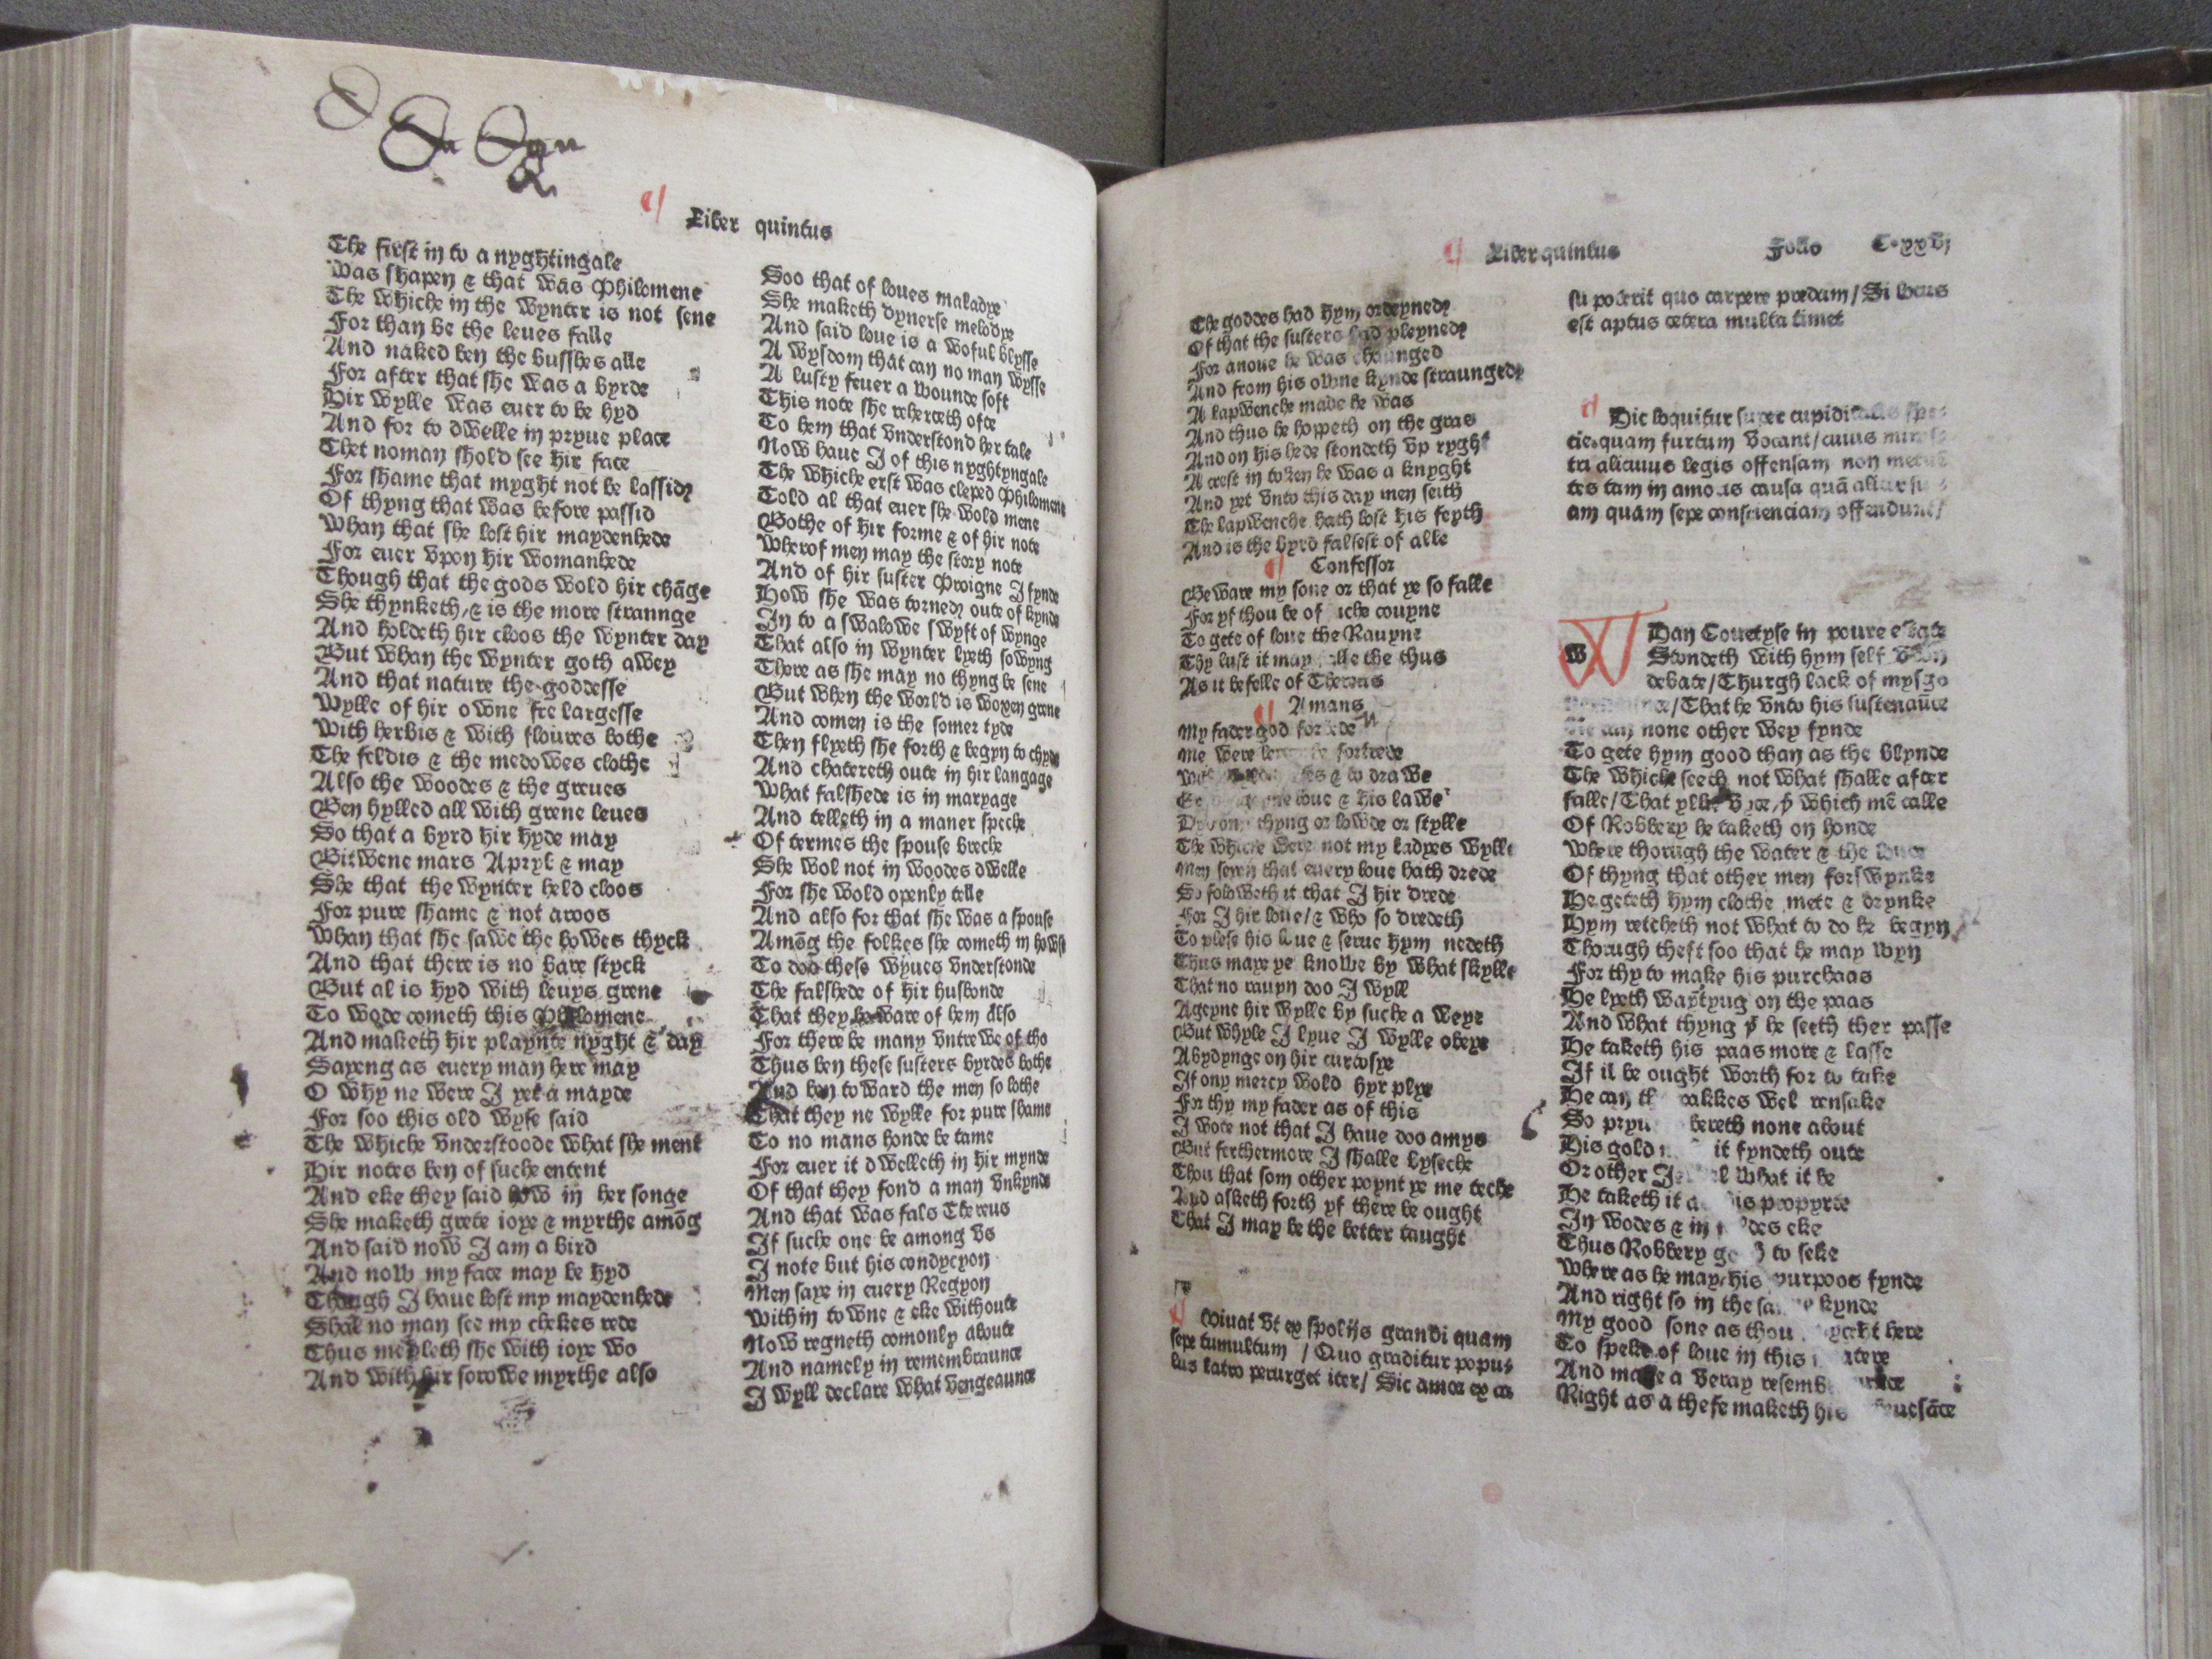 Liber quintus
The first in to a nyghtingale
Was shapen & that was Philomene
The whiche in the wynter is not sene
For than be the leues falle
And naked ben the busshes alle
For after that she was a byrde
Hir wylle was euer to be hyd
And for to dwelle in pryue place
Thet noman shold see hir face
For shame that myght not be lassid
Of thyng that was before passid
Whan that she lost hir maydenhede
For euer vpon hir womanhede
Though that the gods wold hir chāge
She thynketh, & is the more straunge
And holdeth hir cloos the wynter day
But whan the wynter goth awey
And that nature the goddesse
Wylle of hir owne fre largesse
With herbis & with floures bothe
The feldis & the medowes clothe
Also the woodes & the greues
Ben hylled all with grene leues
So that a byrd hir hyde may
Bitwene mars Apryl & may
She that the wynter held cloos
For pure shame & not aroos
Whan that she sawe the bowes thyck
And that there is no bare styck
But al is hyd with leuys grene
To wode cometh this Philomene
And maketh hir playnte nyght & day
Sayeng as euery man here may
O why ne were I yet a mayde
For soo this old wyse said
The whiche vnderstoode what she ment
Hir notes ben of suche entent
And eke they said how in her songe
She maketh grete ioye & myrthe amōg
And said now I am a bird
And now my face may be hyd
Though I haue lost my maydenhede
Shal no man see my chekes rede
Thus medleth she with ioye wo
And with hir sorowe myrthe also
Soo that of loues maladye
She maketh dyuerse melodye
And said loue is a woful blysse
A wysdom that can no man wysse
A lusty feuer a wounde soft
This note she reherceth ofte
To hem that vnderstond her tale
Now haue I of this nyghtyngale
The whiche erst was cleped Philomene
Told al that euer she wold mene
Bothe of hir forme & of hir note
Wherof men may the story note
And of hir suster Proigne I fynde
How she was torned oute of kynde
In to a swalowe swyft of wynge
That also in wynter lyeth sowyng
There as she may no thyng be sene
But when the world is woxen grene
And comen is the somer tyde
Then flyeth she forth & begyn to chyde
And chatereth oute in hir langage
What falshede is in maryage
And telleth in a maner speche
Of termes the spouse breche
She wol not in woodes dwelle
For she wold openly telle
And also for that she was a spouse
Amōg the folkes she cometh in howse
To doo these wyues vnderstonde
The falshede of hir husbonde
That they beware of hem also
For there be many vntrewe of tho
Thus ben these susters byrdes bothe
And ben toward the men so lothe
That they ne wylle for pure shame
To no mans honde be tame
For euer it dwelleth in hir mynde
Of that they fond a man vnkynde
And that was fals Thereus
If suche one be among vs
I note but his condycyon
Men saye in euery Regyon
Within towne & eke without
Now regneth comonly aboute
And namely in remembraunce
I wyll declare what vengeaunce
Liber quintus Folio C·xxvj
The goddes had hym ordeyned
Of that the susters had pleyned
For anone he was chaunged
And from his owne kynde straunged
A lapwenche made he was
And thus he hoppeth on the gras
And on his hede stondeth vp ryght
A crest in token he was a knyght
And yet vnto this day men seith
The lapwenche hath lost his feyth
And is the byrd falsest of alle
Confessor
Beware my sone or that ye so falle
For yf thou be of iche couyne
To gete of loue the Rauyne
Thy lust it may alle the thus
As it befelle of Thereus
Amans
My fader god forbede
Me were be fortrede
& to drawe
loue & his lawe
thyng or lowde or stylle
The whiche were not my ladyes wylle
Men seyn that euery loue hath drede
So foloweth it that I hir drede
For I hir loue/& who so dredeth
To plese his loue & serue hym nedeth
Thus maye ye knowe by what skylle
That no rauyn doo I wyll
Ageyne hir wylle by suche a weye
But whyle I lyue I wylle obeye
Abydynge on hir curtosye
If ony mercy wold hyr plye
For thy my fader as of this
I wote not that I haue doo amys
But ferthermore I shalle byseche
Thou that som other poynt ye me teche
And asketh forth yf there be ought
That I may be the better taught
Viuat vt ex spolijs grandi quam
sepe tumultum / Quo graditur popu-
lus latro perurget iter/ Sic amor ex ca
su poterit quo carpere predam/Si locus
est aptus cetera multa timet
Hic loquitur super cupiditatis spe-
cie quam furtum vocant/cuius minis-
tri alicuius legis offensam non metuē
tes tam in amoris causa quā aliar
am quam sepe conscienciam offendunt/
WHan Couetyse in poure estate
Stondeth with hym self vpon
debate/Thurgh lack of mysgo
/That he vnto his sustenaūce
Ne can none other wey fynde
To gete hym good than as the blynde
The whiche seeth not what shalle after
falle/That ylke vyce/þ which mē calle
Of Robbery he taketh on honde
Where thorugh the water & the londe
Of thyng that other men forswynke
He geteth hym clothe mete & drynke
Hym retcheth not what to do he begyn
Thorugh theft soo that he may wyn
For thy to make his purchaas
He lyeth waytyng on the paas
And what thyng þ he seeth ther passe
He taketh his paas more & lasse
If il be ought worth for to take
He can pakkes wel ransake
So bereth none about
His gold it fyndeth oute
Or other what it be
He taketh it propyrte
In wodes & in eke
Thus Robbery to seke
Where as he may his purpoos fynde
And right so in the kynde
My good sone as thou here
To speke of loue in this
And make a veray
Right as a thefe maketh his